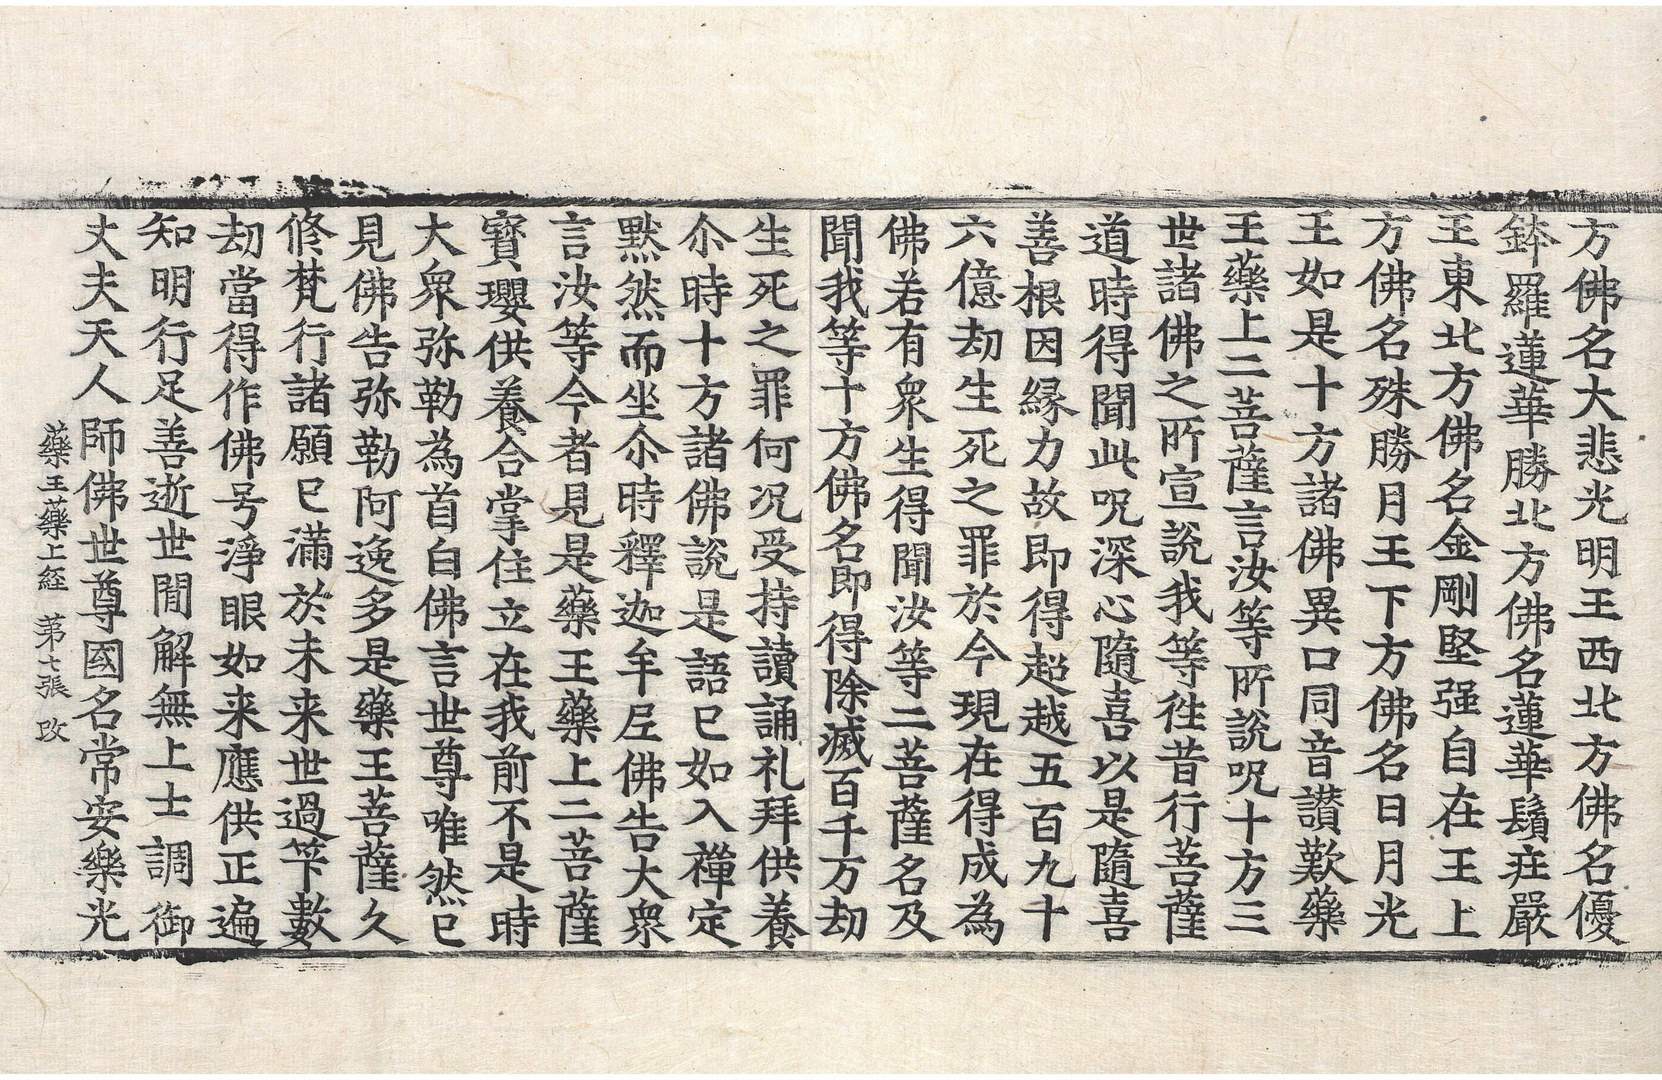 方佛名大悲光明王西北方佛名優
鉢羅蓮華勝北方佛名蓮華鬚莊嚴
王東北方佛名金剛堅强自在王上
方佛名殊勝月王下方佛名日月光
王如是十方諸佛異口同音讃歎藥
王藥上二菩薩言汝等所說呪十方三
世諸佛之所宣說我等徃昔行菩薩
道時得聞此呪深心隨喜以是隨喜
善根因縁力故即得超越五百九十
六億劫生死之罪於今現在得成為
佛若有衆生得聞汝等二菩薩名及
聞我等十方佛名即得除滅百千万劫
生死之罪何况受持讀誦礼拜供養
尒時十方諸佛說是語已如入禪定
黙然而坐尒時釋迦牟尼佛告大衆
言汝等今者見是藥王藥上二菩薩
寶瓔供養合掌住立在我前不是時
大衆弥勒為首白佛言世尊唯然已
見佛告弥勒阿逸多是藥王菩薩久
修梵行諸願已滿於未来世過筭數
劫當得作佛号淨眼如来應供正遍
知明行足善逝世間解無上士調御
丈夫天人師佛世尊國名常安樂光
藥王藥上經　第七張　改